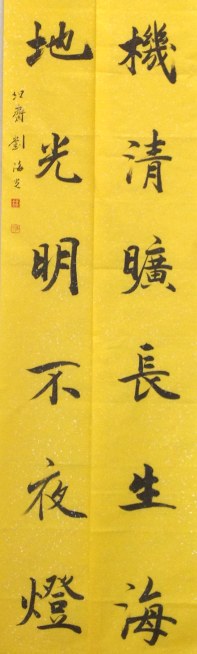 機清曠長生海
地光明不夜燈
劉海